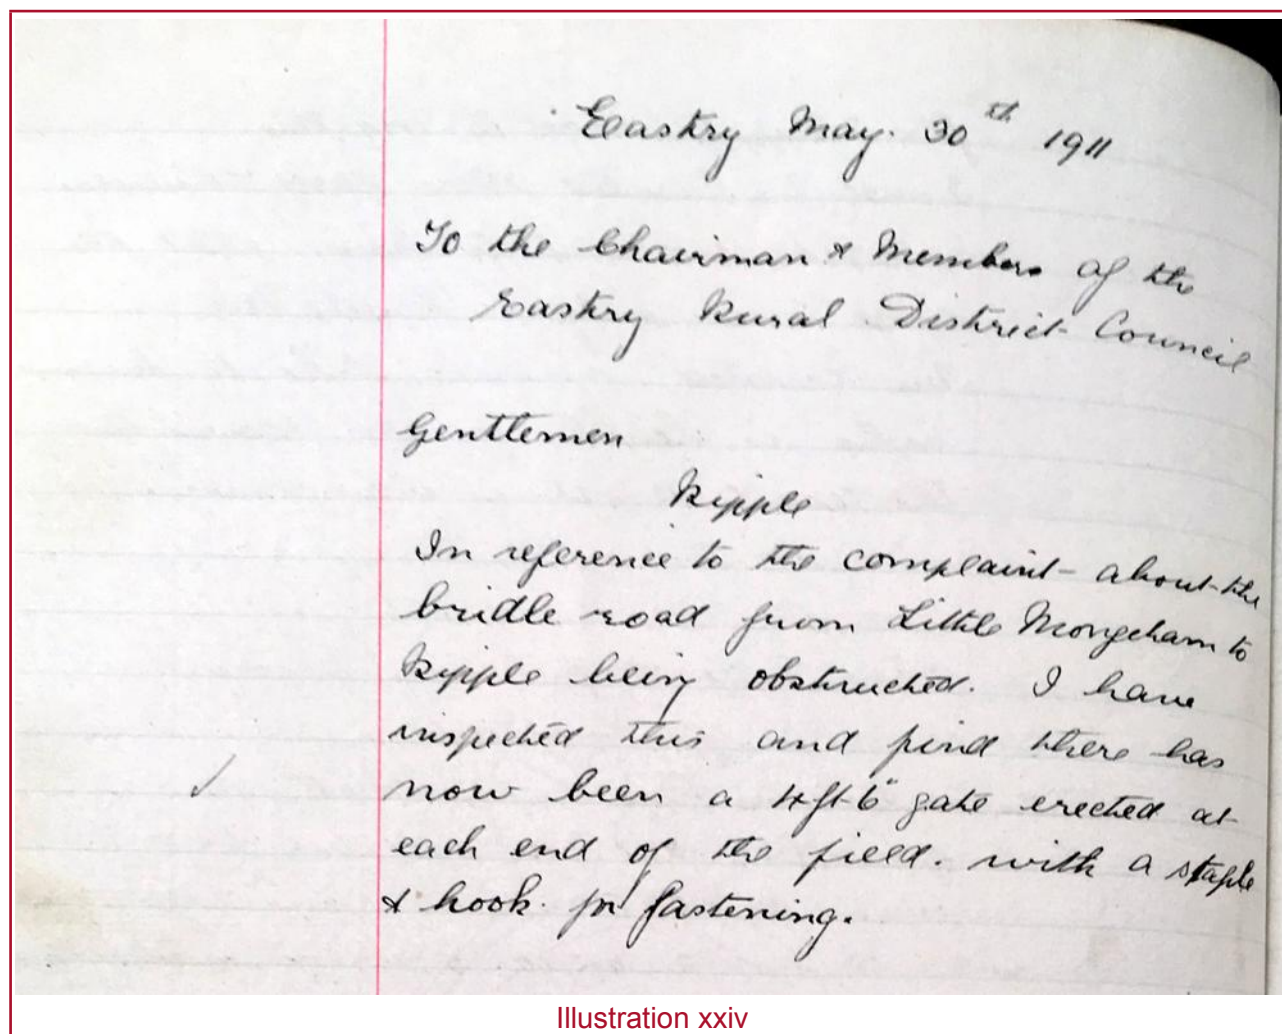 Eastry May. 30th 1911
To the Chairman & Members of the
Eastry Rural District Council
Gentlemen
Ripple
In reference to the complaint - about the
bridle road from Little Mongeham to
Ripple being obstructed. I have
inspected this and find there has
now been a 4ft 6" gate erected at
each end of the field. with a staple
& hook. for fastening.
Illustration xxiv